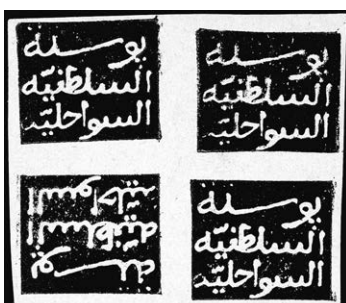 بوستة
السلطنيّه
السواحليّه
بوستة
السلطنيّه
السواحليّه
بوستة
السلطنيّه
السواحليّه
بوستة
السلطنيّه
السواحليّه